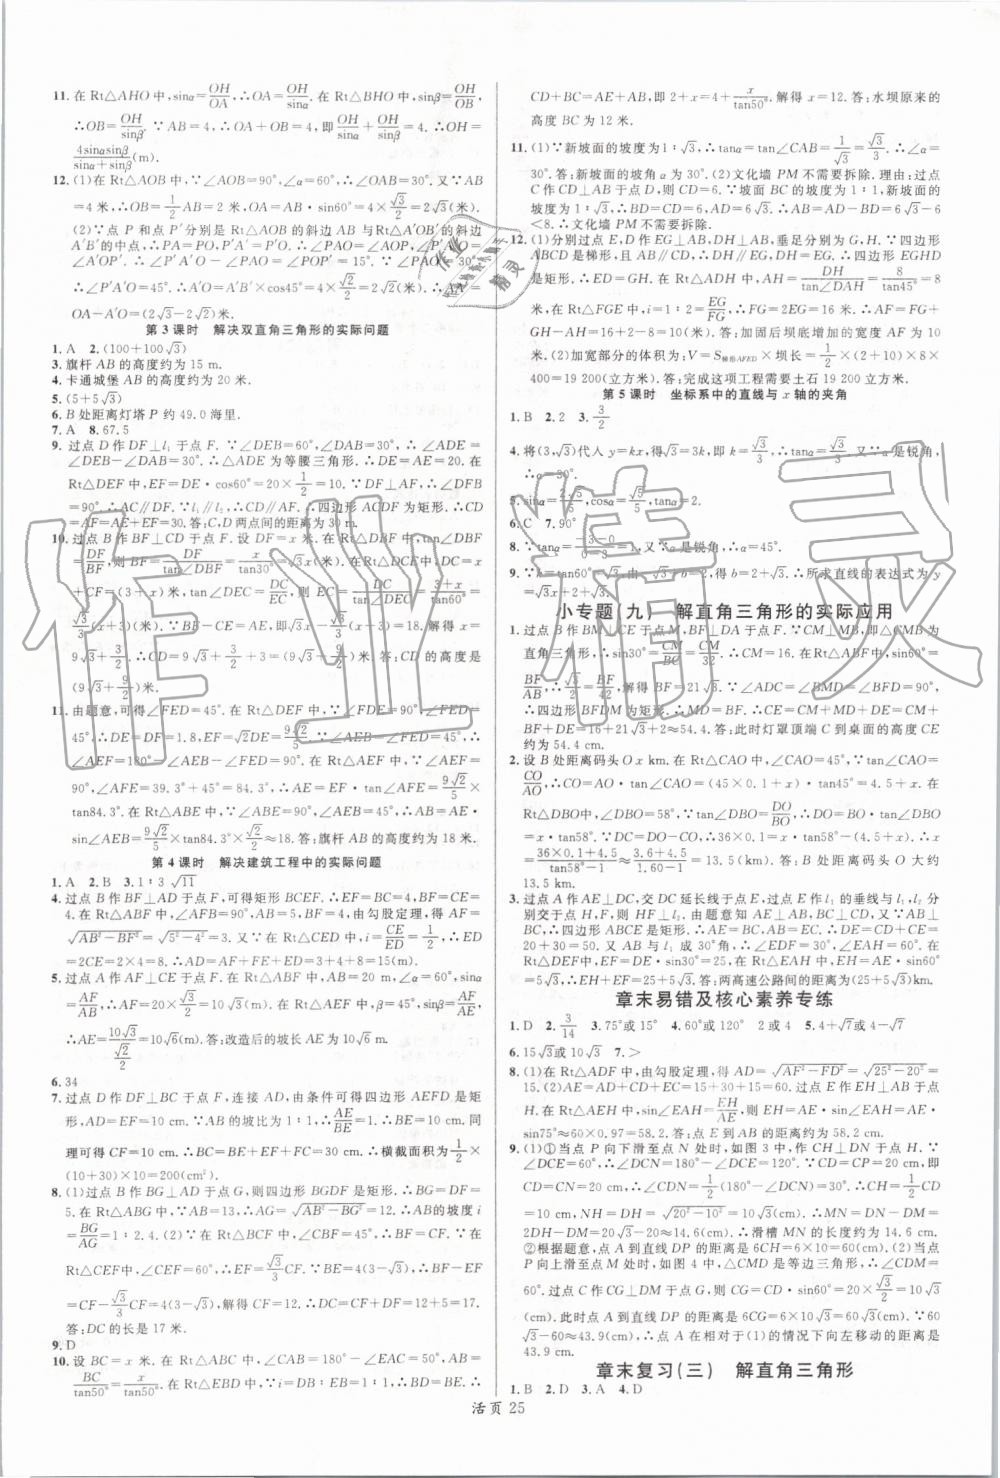 11. 在 Rt△AHO 中,sinα=OH/OA,∴OA=OH/sinα. 在 Rt△BHO 中,sinβ=OH/OB,
∴OB=OH/sinβ. ∵AB=4,∴OA+OB=4,即OH/sinα+OH/sinβ=4. ∴OH=
4sinαsinβ/(sinα+sinβ)(m).
12. (1)在 Rt△AOB 中,∵∠AOB=90°,∠α=60°,∴∠OAB=30°. 又∵AB
=4 米,∴OB=1/2AB=2 米,OA=AB·sin60°=4×√3/2=2√3(米).
(2)∵点 P 和点 P′分别是 Rt△AOB 的斜边 AB 与 Rt△A′OB′的斜边
A′B′的中点,∴PA=PO,P′A′=P′O. ∴∠PAO=∠AOP,∠P′A′O=
∠A′OP′. ∴∠P′A′O-∠PAO=∠POP′=15°. ∵∠PAO=30°,
∴∠P′A′O=45°. ∴A′O=A′B′·cos45°=4×√2/2=2√2(米). ∴AA′=
OA-A′O=(2√3-2√2)米.
第 3 课时 解决双直角三角形的实际问题
1. A 2. (100+100√3)
3. 旗杆 AB 的高度约为 15 m.
4. 卡通城堡 AB 的高度约为 20 米.
5. (5+5√3)
6. B 处距离灯塔 P 约 49.0 海里.
7. A 8. 67.5
9. 过点 D 作 DF⊥l₁ 于点 F. ∵∠DEB=60°,∠DAB=30°,∴∠ADE=
∠DEB-∠DAB=30°. ∴△ADE 为等腰三角形. ∴DE=AE=20. 在
Rt△DEF 中,EF=DE·cos60°=20×1/2=10. ∵DF⊥AF,∴∠DFB
=90°. ∴AC∥DF. ∵l₁∥l₂,∴CD∥AF. ∴四边形 ACDF 为矩形. ∴CD
=AF=AE+EF=30. 答:C,D 两点间的距离为 30 m.
10. 过点 D 作 DF⊥AB 于点 F. 设 DF=x 米. 在 Rt△DBF 中,tan∠DBF=
DF/BF,则 BF=DF/tan∠DBF=x/tan30°=√3x(米). 在 Rt△DCE 中,DC=
x+CF=(3+x)米. 在 Rt△ 中,tan∠DEC=DC/EC,∴EC=(3+x)/tan60°=
√3/3(x+3)(米). ∵BF-CE=AE,即√3x-√3/3(x+3)=18. 解得 x=
9√3+3/2. ∴CD=9√3+3/2+3=9√3+9/2(米). 答:CD 的高度是
(9√3+9/2)米.
11. 由题意,可得∠FED=45°. 在 Rt△DEF 中,∵∠FDE=90°,∠FED=
45°,∴DE=DF=1.8,EF=√2DE=9√2/5. ∵∠AEB=∠FED=45°,∴
∠AEF=180°-∠AEB-∠FED=90°. 在 Rt△AEF 中,∵∠AEF=
90°,∠AFE=39.3°+45°=84.3°,∴AE=EF·tan∠AFE=9√2/5×
tan84.3°. 在 Rt△ABE 中,∵∠ABE=90°,∠AEB=45°,∴AB=AE·
sin∠AEB=9√2/5×tan84.3°×√2/2≈18. 答:旗杆 AB 的高度约为 18 米.
第 4 课时 解决建筑工程中的实际问题
1. A 2. B 3. 1∶3 √11
4. 过点 B 作 BF⊥AD 于点 F,可得矩形 BCEF. ∴EF=BC=4,BF=CE=
4. 在 Rt△ABF 中,∵∠AFB=90°,AB=5,由勾股定理,得 AF=
√(AB²-BF²)=√(5²-4²)=3. 又∵在 Rt△CED 中,i=CE/ED=1/2,∴ED
=2CE=2×4=8. ∴AD=AF+FE+ED=3+4+8=15(m).
5. 过点 A 作 AF⊥CE 于点 F. 在 Rt△ABF 中,AB=20 m,∠α=60°,sinα
=AF/AB,∴AF=20×√3/2=10√3(m). 在 Rt△AEF 中,β=45°,sinβ=AF/AE,
∴AE=10√3/(√2/2)=10√6(m). 答:改造后的坡长 AE 为 10√6 m.
6. 34
7. 过点 D 作 DF⊥BC 于点 F,连接 AD,由条件可得四边形 AEFD 是矩
形,AD=EF=10 cm. ∵AB 的坡比为 1∶1,∴AE/BE=1. ∴BE=10 cm. 同
理可得 CF=10 cm,∴BC=BE+EF+FC=30 cm,∴横截面积=1/2×
(10+30)×10=200(cm²).
8. (1)过点 B 作 BG⊥AD 于点 G,则四边形 BGDF 是矩形. ∴BG=DF=
5. 在 Rt△ABG 中,∵AB=13,∴AG=√(AB²-BG²)=12. ∴AB的坡度 i
=BG/AG=1∶2.4. (2)在 Rt△BCF 中,BF=CF/tan∠CBF=CF. 在
Rt△CEF 中,∠CEF=60°,∴EF=√3/3CF. ∵BE=4(米),∴BF-EF
=CF-√3/3CF=4(3-√3). 解得 CF=12. ∴DC=CF+DF=12+5=17.
答:DC 的长是 17 米.
9. D
10. 设 BC=x 米. 在 Rt△ABC 中,∠CAB=180°-∠EAC=50°,AB=
BC/tan50°=x/tan50°. 在 Rt△EBD 中,∵i=DB∶EB=1∶1,∴BD=BE. ∴
CD+BC=AE+AB,即 2+x=4+x/tan50°. 解得 x=12. 答:水坝原来的
高度 BC 为 12 米.
11. (1)∵新坡面的坡度为 1∶√3,∴tanα=tan∠CAB=1/√3=√3/3. ∴∠α=
30°. 答:新坡面的坡角 α 为 30°. (2)文化墙 PM 不需要拆除. 理由:过点
C 作 CD⊥AB 于点 D,则 CD=6. ∵坡面 BC 的坡度为 1∶1,新坡面的
坡度为 1∶√3,∴BD=CD=6,AD=6√3. ∴AB=AD-BD=6√3-6
<8. ∴文化墙 PM 不需要拆除.
12. (1)分别过点 E,D 作 EG⊥AB,DH⊥AB,垂足分别为 G,H. ∵四边形
ABCD 是梯形,且 AB∥CD,∴DH∥EG,DH=EG. ∴四边形 EGHD
是矩形. ∴ED=GH. 在 Rt△ADH 中,AH=DH/tan∠DAH=8/tan45°=
8(米). 在 Rt△FGE 中,i=1∶2=EG/FG,∴FG=2EG=16米. ∴AF=FG+
GH-AH=16+2-8=10(米). 答:加固后坝底增加的宽度 AF 为 10
米. (2)加宽部分的体积为:V=S梯形AFED×坝长=1/2×(2+10)×8×
400=19 200(立方米). 答:完成这项工程需要土石 19 200 立方米.
第 5 课时 坐标系中的直线与 x 轴的夹角
1. B 2. 2 3. 3/2
4. 将(3,√3)代入 y=kx,得√3=3k,∴k=√3/3. ∴tanα=√3/3. 又∵α是锐角,
∴α=30°.
5. sinα=2√5/5,cosα=√5/5,tanα=2.
6. C 7. 90°
8. ∵tanα=|-3/(0-3)|=1. 又∵α是锐角,∴α=45°.
9. ∵k=tan60°=√3,由√3+b=2+2√3,得 b=2+√3. ∴所求直线的表达式为 y
=√3x+2+√3.
小专题(九) 解直角三角形的实际应用
1. 过点 B 作 BM⊥CE 于点 M,BF⊥DA 于点 F. ∵CM⊥MB,即△CMB为
直角三角形,∴sin30°=CM/BC=CM/32. ∴CM=16. 在 Rt△ABF 中,sin60°=
BF/AB,∴√3/2=BF/42,解得 BF=21√3. ∵∠ADC=∠BMD=∠BFD=90°,
∴四边形 BFDM 为矩形. ∴MD=BF. ∴CE=CM+MD+DE=CM+
BF+ED=16+21√3+2≈54.4. 答:此时灯罩顶端 C 到桌面的高度 CE
约为 54.4 cm.
2. 设 B 处距离码头 O x km. 在 Rt△CAO 中,∠CAO=45°,∵tan∠CAO=
CO/AO,∴CO=AO·tan∠CAO=(45×0.1+x)·tan45°=4.5+x. 在
Rt△DBO 中,∠DBO=58°,∵tan∠DBO=DO/BO,∴DO=BO·tan∠DBO
=x·tan58°. ∵DC=DO-CO,∴36×0.1=x·tan58°-(4.5+x). ∴x
=(36×0.1+4.5)/(tan58°-1)≈(3.6+4.5)/(1.60-1)=13.5. 答:B 处距离码头 O 大约
13.5 km.
3. 过点 A 作 AE⊥DC,交 DC 延长线于点 E,过点 C 作 l₁ 的垂线与 l₁,l₂ 分
别交于点 H,F,则 HF⊥l₂. 由题意知 AE⊥AB,BC⊥CD,又∵AB⊥
BC,∴四边形 ABCE 是矩形. ∴AE=BC,AB=EC. ∴DE=DC+CE=
20+30=50. 又 AB 与 l₁ 成 30°角,∴∠EDF=30°,∠EAH=60°. ∴EF=25,
EH=5√3,∴EH+EF=25+5√3. 答:两高速公路间的距离为(25+5√3)km.
章末易错及核心素养专练
1. D 2. 3/14 3. 75°或 15° 4. 60°或 120° 2 或 4 5. 4+√7或 4-√7
6. 15√3或 10√3 7. >
8. (1)在 Rt△ADF 中,由勾股定理,得 AD=√(AF²-FD²)=√(25²-20²)=
15. (2)AE=AD+CD+EC=15+30+15=60. 过点 E 作 EH⊥AB 于点
H. 在 Rt△AEH 中,sin∠EAH=EH/AE,则 EH=AE·sin∠EAH=AE·
sin75°≈60×0.97=58.2. 答:点 E 到 AB 的距离约为 58.2 cm.
9. (1)①当点 P 向下滑至点 N 处时,如图 3 中,作 CH⊥DN 于点 H. ∵
∠CDE=60°,∴∠DCN=180°-∠CDE=120°,∵CD=
CP=CN=20 cm,∴∠CDN=∠CND=1/2(180°-∠DCN)=30°,∴CH=1/2CD
=10 cm,NH=DH=√(20²-10²)=10√3(cm). ∴MN=DN-DM=
2DH-DM=20√3-20≈14.6(cm). ∴滑槽 MN 的长度约为 14.6 cm.
②根据题意,点 A 到直线 DP 的距离是 6CH=6×10=60(cm). (2)当点
P 向上滑至点 M 处时,如图 4 中,△CMD 是等边三角形,∴∠CDM=
60°. 过点 C 作 CG⊥DM 于点 G,则 CG=CD·sin60°=20×√3/2=10√3
(cm),此时点 A 到直线 DP 的距离是 6CG=6×10√3=60√3(cm). ∵60
√3-60≈43.9(cm),∴点 A 在相对于(1)的情况下向左移动的距离约为
43.9 cm.
章末复习(三) 解直角三角形
1. B 2. D 3. A 4. D
活页 25
作业精灵